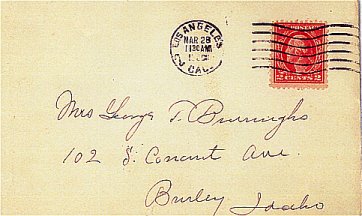 LOS ANGELES
MAR 28
1130AM
CAL.
POSTAGE
2 CENTS 2
Mrs George T. Burroughs
102 S. Conant Ave.
Burley, Idaho